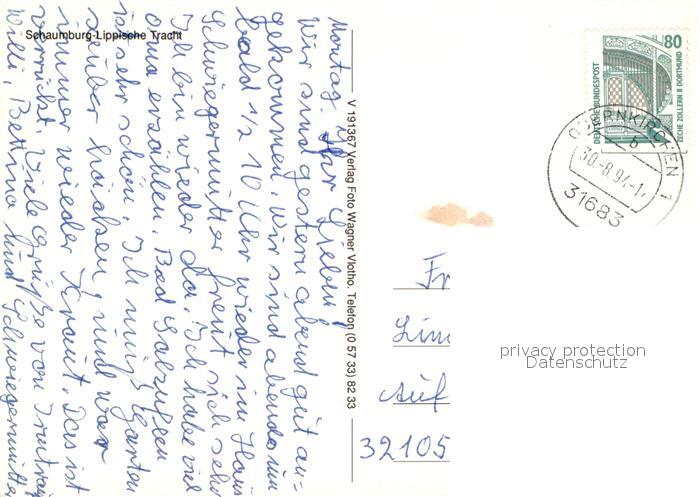 Schaumburg-Lippische Tracht
Montag. Ihr Lieben!
Wir sind gestern abend gut an-
gekommen. Wir sind abends um
bald 1/2 10 Uhr wieder im Haus
Schwiegermutter freut sich sehr
Ich bin wieder da. Ich habe viel
Oma erzählen. Bad Salzuflen
ist sehr schön. Ich muß Garten
sauber und
immer wieder Kraut. Das ist
verrückt. Viele Grüße von
Willi, Bettina und Schwiegermutter
V 191367 Verlag Foto Wagner Vlotho, Telefon (0 57 33) 82 33
80
DEUTSCHE BUNDESPOST
ZECHE ZOLLERN II DORTMUND
OBERNKIRCHEN 1
b
30.-8.94-1
31683
Fr
Lim
Auf
32105
privacy protection
Datenschutz